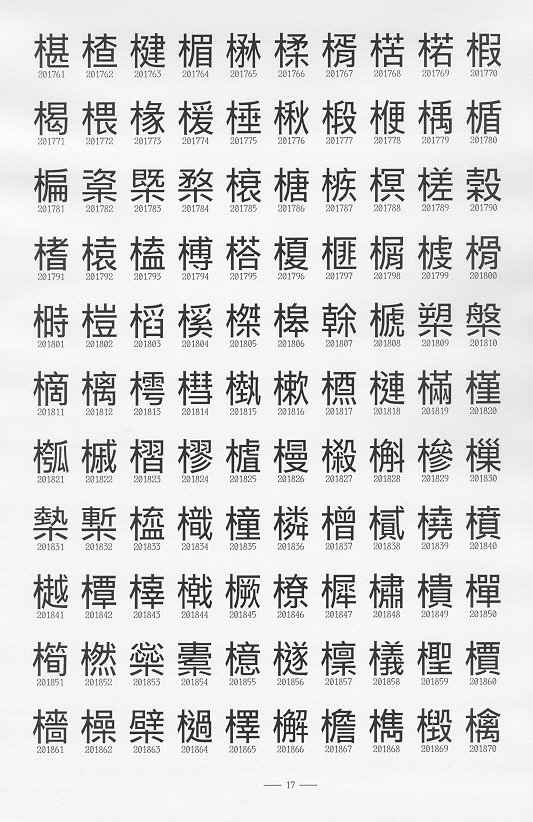 椹 楂 楗 楣 楙 楺 楈 楛 楉 椵
201761 201762 201763 201764 201765 201766 201767 201768 201769 201770
楬 椳 椽 楥 棰 楸 椴 楩 楀 楯
201771 201772 201773 201774 201775 201776 201777 201778 201779 201780
楄 楶 槩 楘 榱 榶 槉 榠 槎 榖
201781 201782 201783 201784 201785 201786 201787 201788 201789 201790
榰 榬 榼 榑 榙 榎 榧 榍 榩 榾
201791 201792 201793 201794 201795 201796 201797 201798 201799 201800
榯 榿 槄 榽 榤 槔 榦 榹 槊 槃
201801 201802 201803 201804 201805 201806 201807 201808 201809 201810
樀 樆 樗 槥 槸 樕 槱 槤 樠 槿
201811 201812 201813 201814 201815 201816 201817 201818 201819 201820
槬 槭 槢 樛 樝 槾 樧 槲 槮 樔
201821 201822 201823 201824 201825 201826 201827 201828 201829 201830
槷 槧 橀 樴 橦 橉 橧 樲 橈 橨
201831 201832 201833 201834 201835 201836 201837 201838 201839 201840
樾 橝 榟 橶 橛 橑 樨 橚 樻 樿
201841 201842 201843 201844 201845 201846 201847 201848 201849 201850
橁 橪 橤 橐 檍 檖 檁 檥 檉 檟
201851 201852 201853 201854 201855 201856 201857 201858 201859 201860
檣 橾 檗 檛 檡 檞 檐 檇 檓 檎
201861 201862 201863 201864 201865 201866 201867 201868 201869 201870
— 17 —